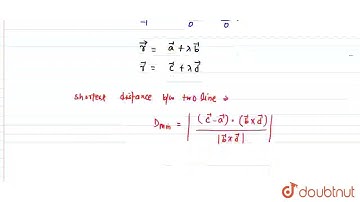 -1 0 0
r⃗ = a⃗ + λb⃗
r⃗ = c⃗ + λd⃗
shortest distance b/w two line ⇒
Dmin = | (c⃗ - a⃗) · (b⃗ x d⃗) / |b⃗ x d⃗| |
doubtnut